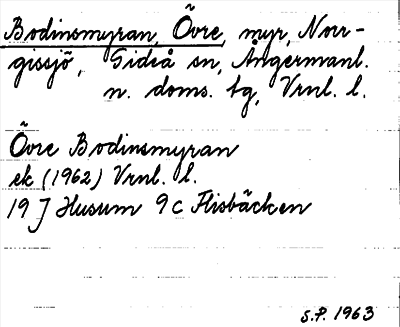 Bodinsmyran, Övre, myr, Norr-
gissjö, Gideå sn, Ångermanl.
n. doms. tg, Vrnl. l.
Övre Bodinsmyran
ek (1962) Vrnl. l.
19 J Husum 9 c Flisbäcken
S.P. 1963